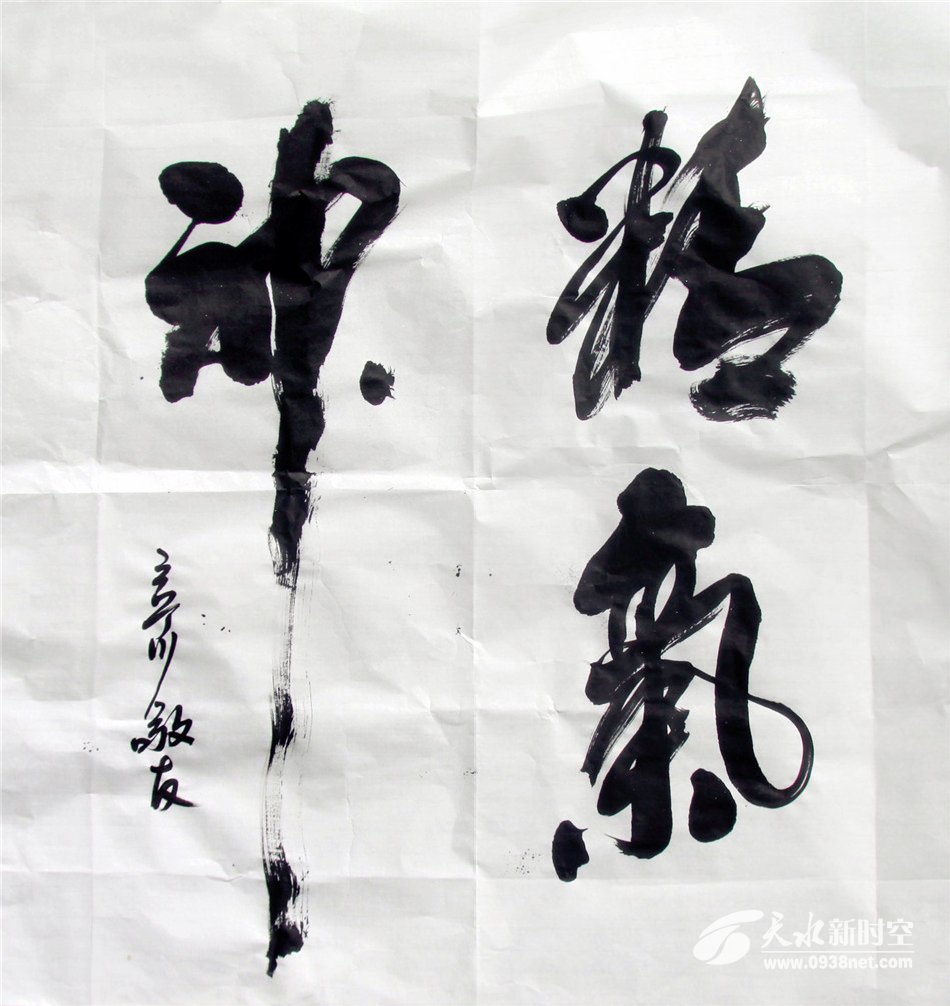 精氣
神
川敬友
天水新时空
www.0938net.com